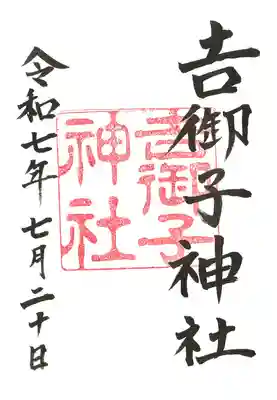 𠮷御子神社
𠮷御子神社
令和七年 七月二十日